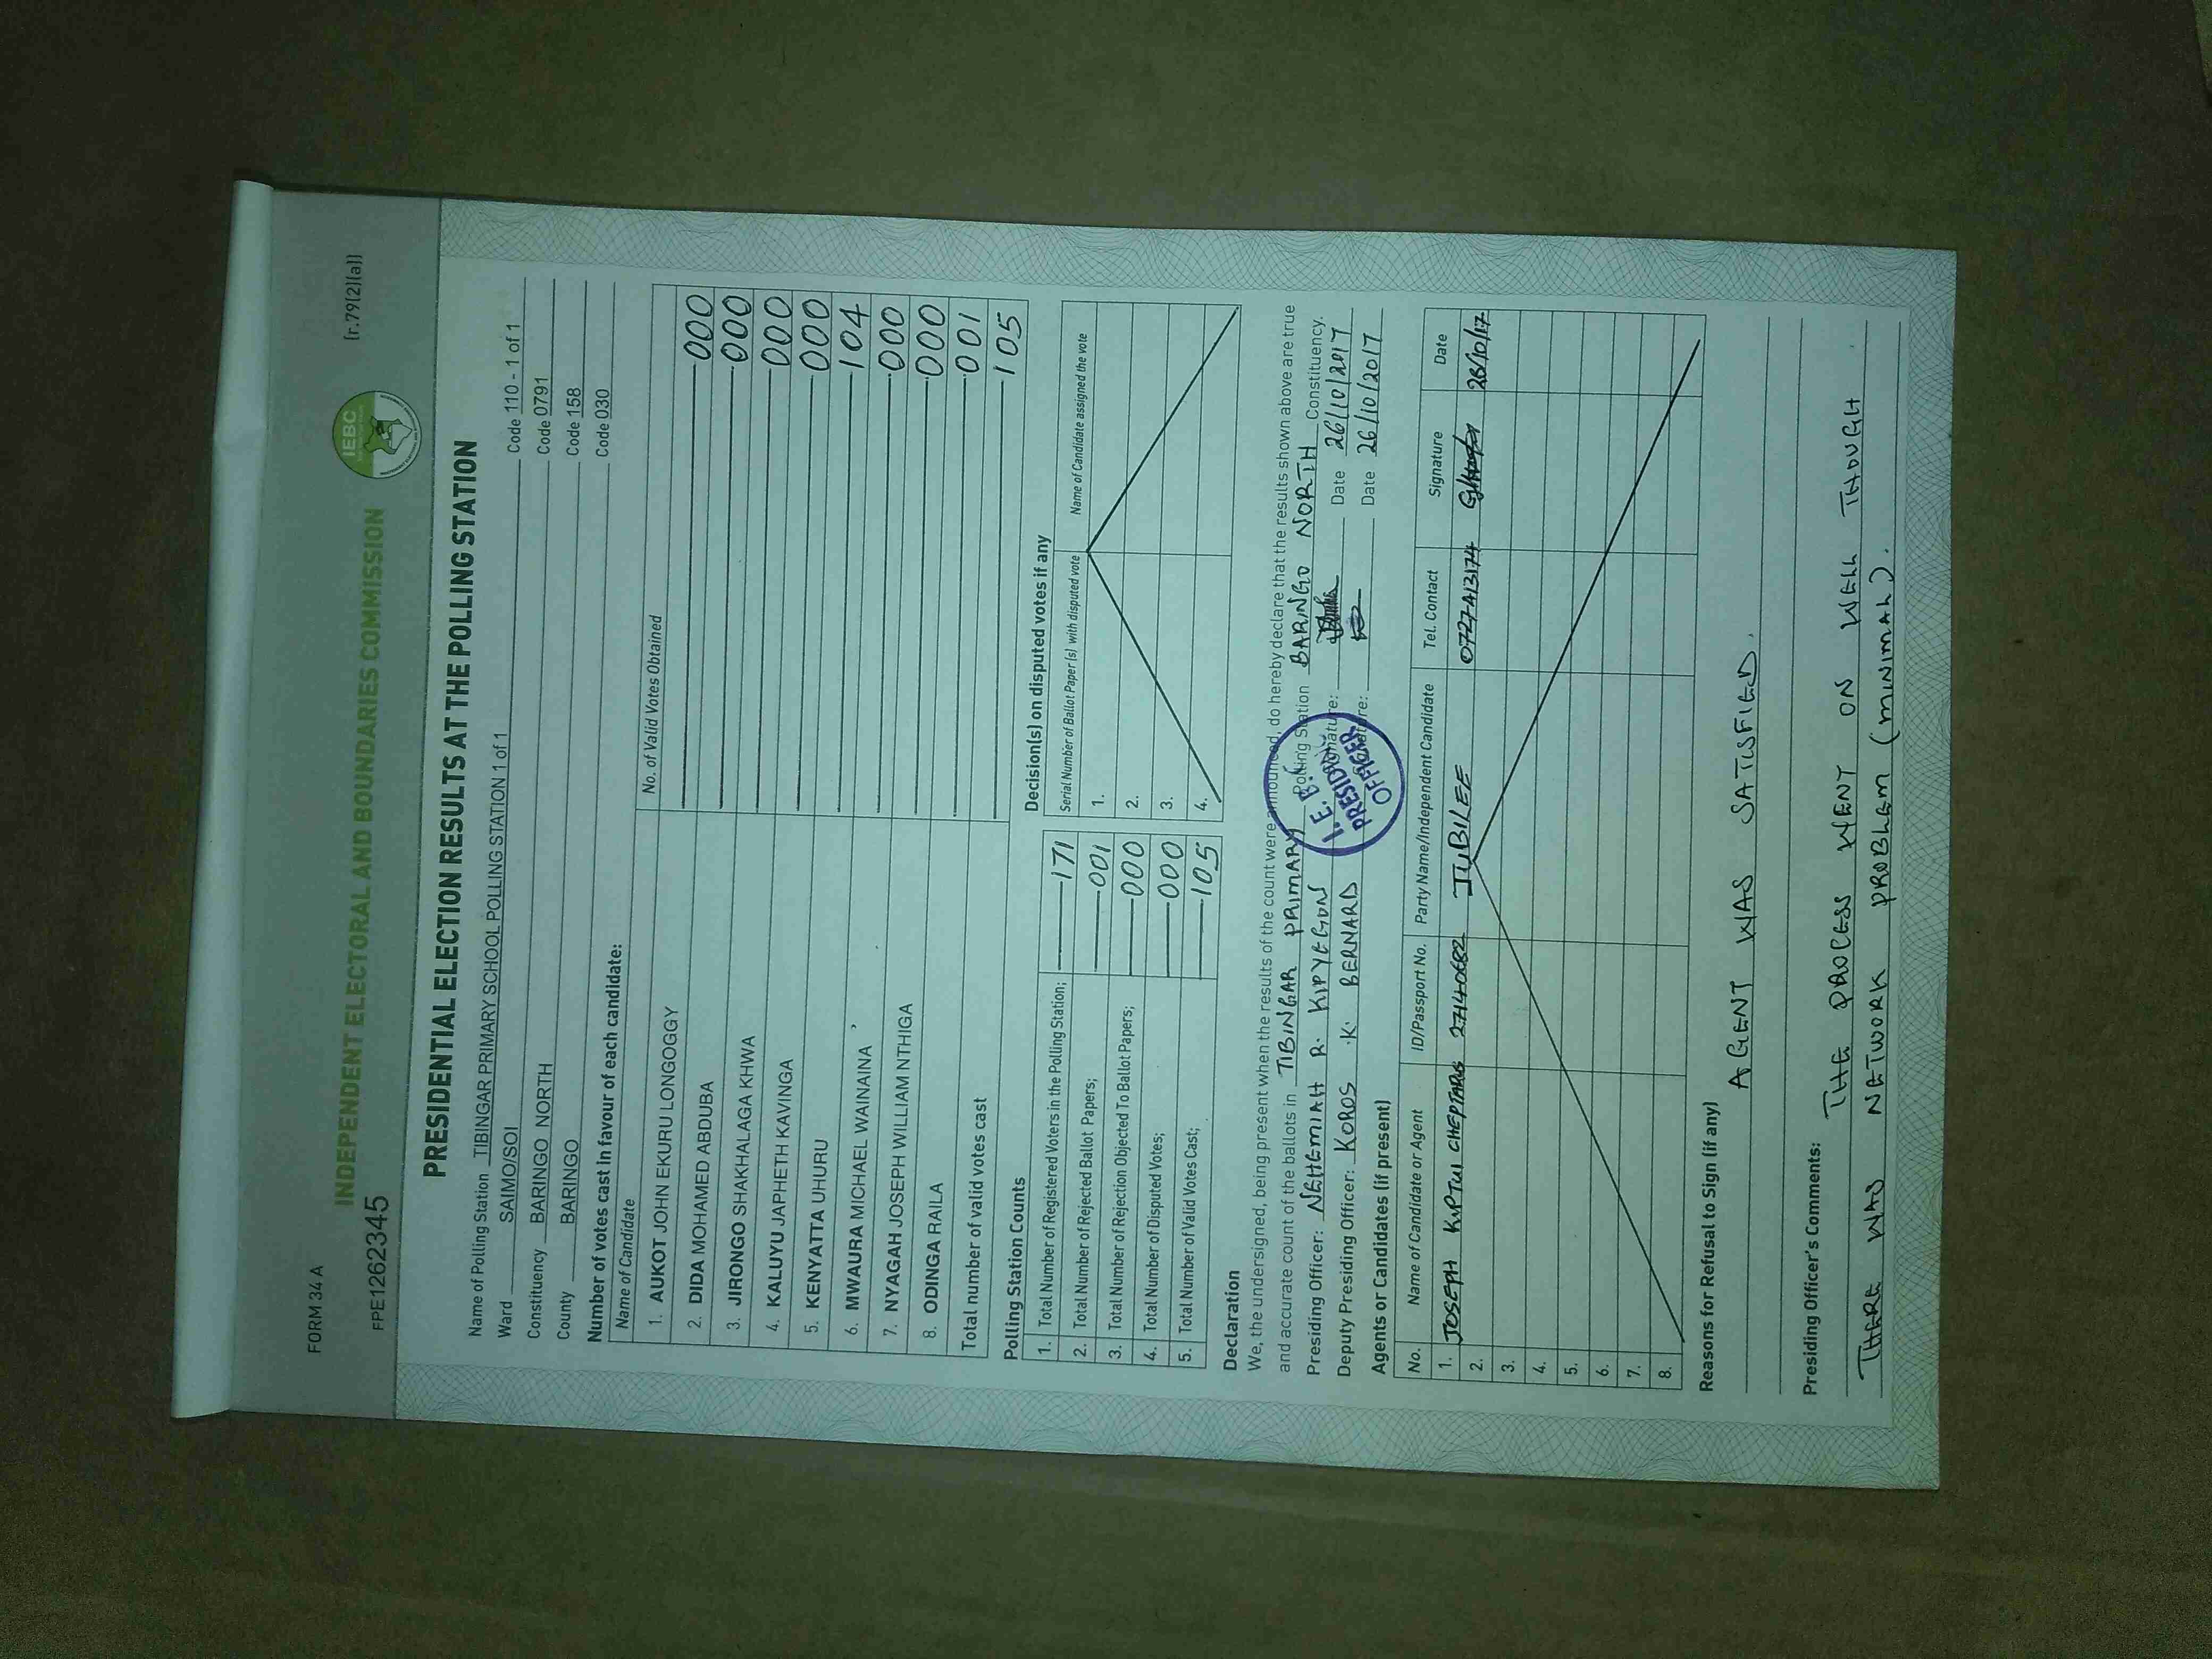 FORM 34 A
IEBC
[r.79(2)(a)]
INDEPENDENT ELECTORAL AND BOUNDARIES COMMISSION
FPE1262345
PRESIDENTIAL ELECTION RESULTS AT THE POLLING STATION
Name of Polling Station TIBINGAR PRIMARY SCHOOL POLLING STATION 1 of 1 Code 110 - 1 of 1
Ward SAIMO/SOI Code 0791
Constituency BARINGO NORTH Code 158
County BARINGO Code 030
Number of votes cast in favour of each candidate:
Name of Candidate No. of Valid Votes Obtained
1. AUKOT JOHN EKURU LONGOGGY 000
2. DIDA MOHAMED ABDUBA 000
3. JIRONGO SHAKHALAGA KHWA 000
4. KALUYU JAPHETH KAVINGA 000
5. KENYATTA UHURU 104
6. MWAURA MICHAEL WAINAINA 000
7. NYAGAH JOSEPH WILLIAM NTHIGA 000
8. ODINGA RAILA 001
Total number of valid votes cast 105
Polling Station Counts
1. Total Number of Registered Voters in the Polling Station; 171
2. Total Number of Rejected Ballot Papers; 001
3. Total Number of Rejection Objected To Ballot Papers; 000
4. Total Number of Disputed Votes; 000
5. Total Number of Valid Votes Cast; 105
Decision(s) on disputed votes if any
Serial Number of Ballot Paper (s) with disputed vote Name of Candidate assigned the vote
1.
2.
3.
4.
Declaration
We, the undersigned, being present when the results of the count were announced, do hereby declare that the results shown above are true
and accurate count of the ballots in TIBINGAR PRIMARY Polling Station BARINGO NORTH Constituency.
Presiding Officer: NEHEMIAH R. KIPYEGON Signature: Date 26/10/2017
Deputy Presiding Officer: KOROS .K. BERNARD Signature: Date 26/10/2017
I.E.B.C
PRESIDING
OFFICER
Agents or Candidates (if present)
No. Name of Candidate or Agent ID/Passport No. Party Name/Independent Candidate Tel. Contact Signature Date
1. JOSEPH KIPTUI CHEPTARUS JUBILEE 26/10/17
2.
3.
4.
5.
6.
7.
8.
Reasons for Refusal to Sign (if any)
AGENT WAS SATISFIED.
Presiding Officer's Comments:
THE PROCESS WENT ON WELL THOUGH
THERE WAS NETWORK PROBLEM (MINIMAL).